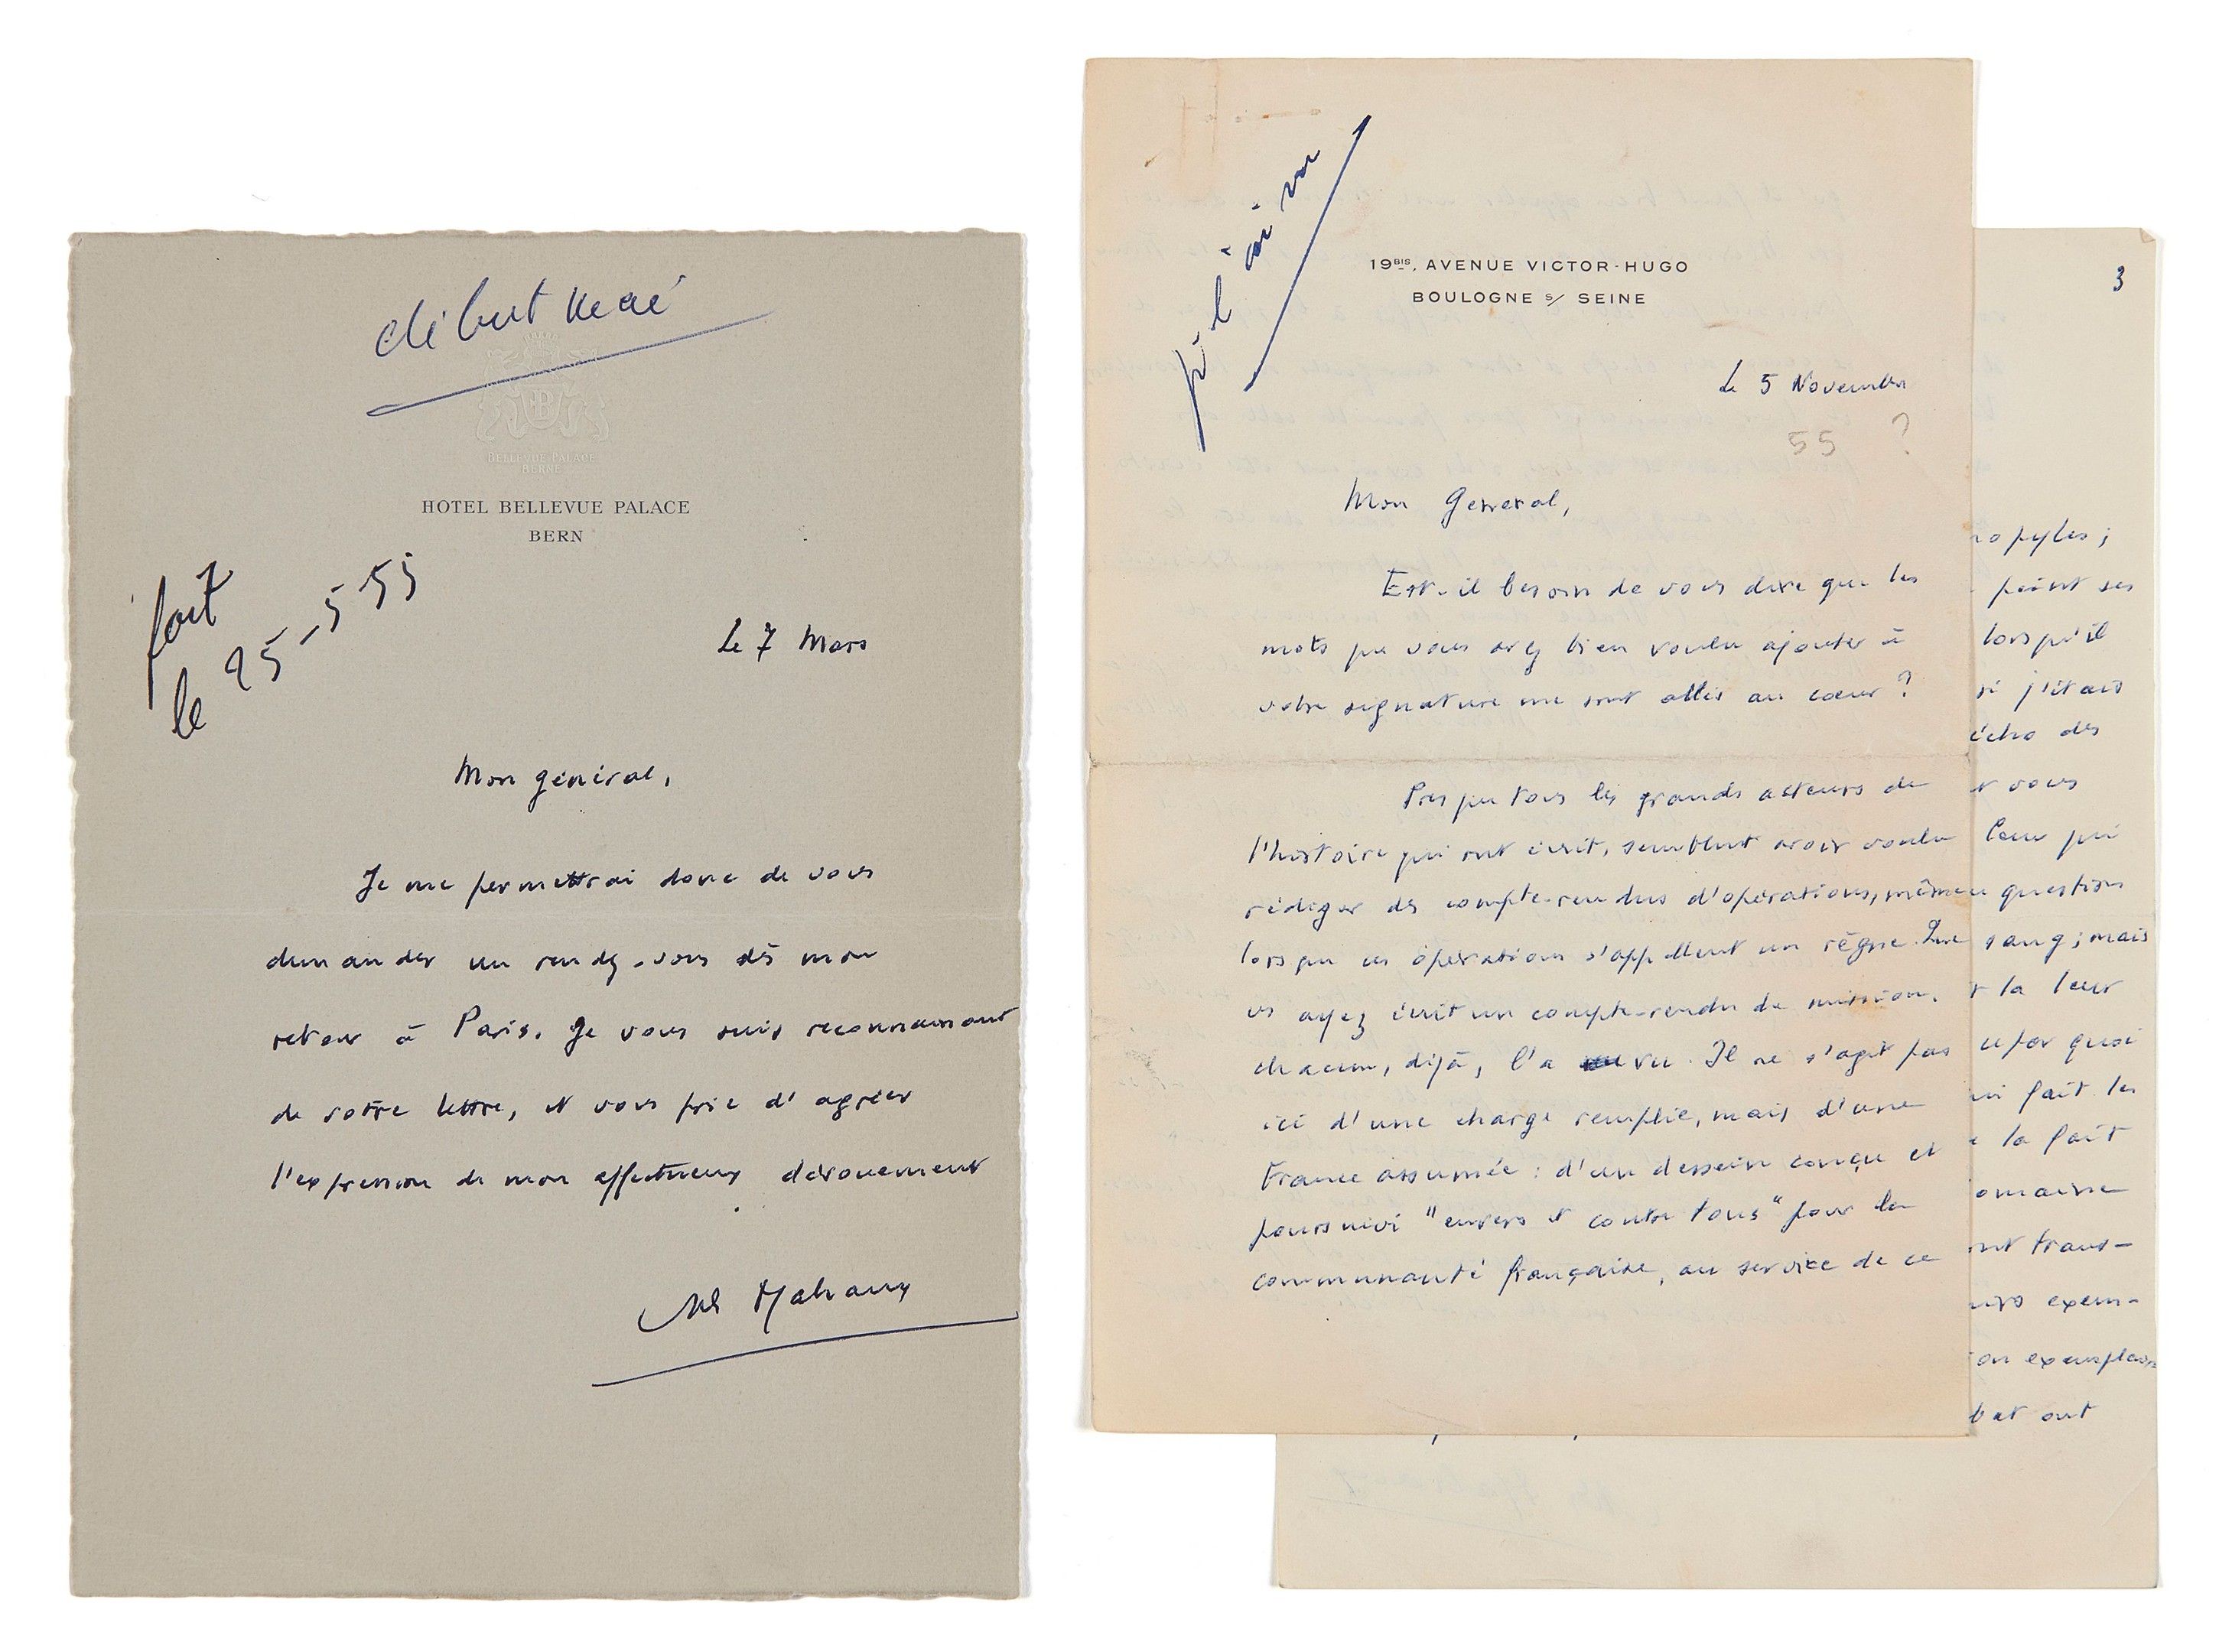 début mai
BELLEVUE PALACE
BERNE
HOTEL BELLEVUE PALACE
BERN
fait
le 25-5-55
Le 7 Mars
Mon général,
Je me permettrai donc de vous
demander un rendez-vous dès mon
retour à Paris. Je vous suis reconnaissant
de votre lettre, et vous prie d'agréer
l'expression de mon affectueux dévouement
Malraux
19BIS, AVENUE VICTOR-HUGO
BOULOGNE S/ SEINE
Le 5 Novembre
55 ?
Mon Général,
Est-il besoin de vous dire que les
mots que vous avez bien voulu ajouter à
votre signature me sont allés au cœur ?
Presque tous les grands acteurs de
l'histoire qui ont écrit, semblent avoir voulu
rédiger des compte-rendus d'opérations, même
lorsque ces opérations s'appellent un règne. Que
vs ayez écrit un compte-rendu de mission,
chacun, déjà, l'a vu. Il ne s'agit pas
ici d'une charge remplie, mais d'une
France assumée : d'un dessein conçu et
poursuivi "envers et contre tous" pour la
communauté française, au service de ce
3
opyles ;
point ses
lorsqu'il
si j'étais
écho des
vous
Ceux qui
question
sang ; mais
la leur
quoi
fait les
la fait
omaine
ont trans-
exem-
on exemplaire
bat ont